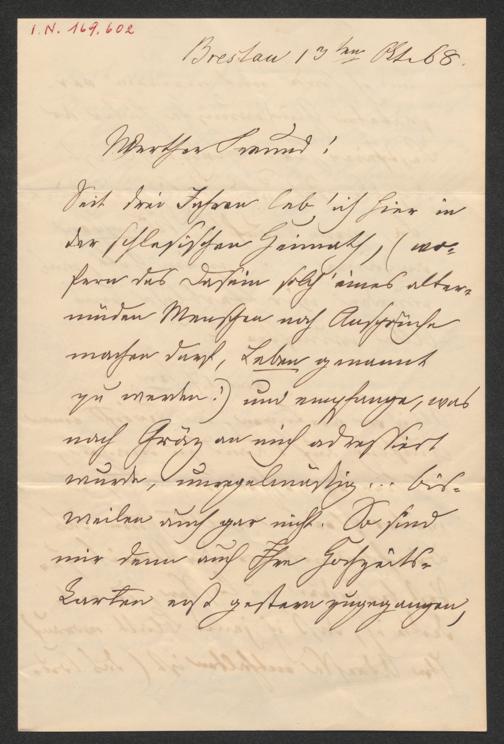 I. N. 169.602
Breslau 13ten Okt. 68.
Werther Freund!
Seit drei Jahren leb' ich hier in
der schlesischen Heimath, (wo-
fern das Dasein solch' eines alter-
müden Menschen noch Ansprüche
machen darf, Leben genannt
zu werden!) und empfange, was
nach Gräz an mich adressiert
wurde, unregelmäßig... bis-
weilen auch gar nicht. So sind
mir denn auch Ihre Hochzeits-
Karten erst gestern zugegangen,